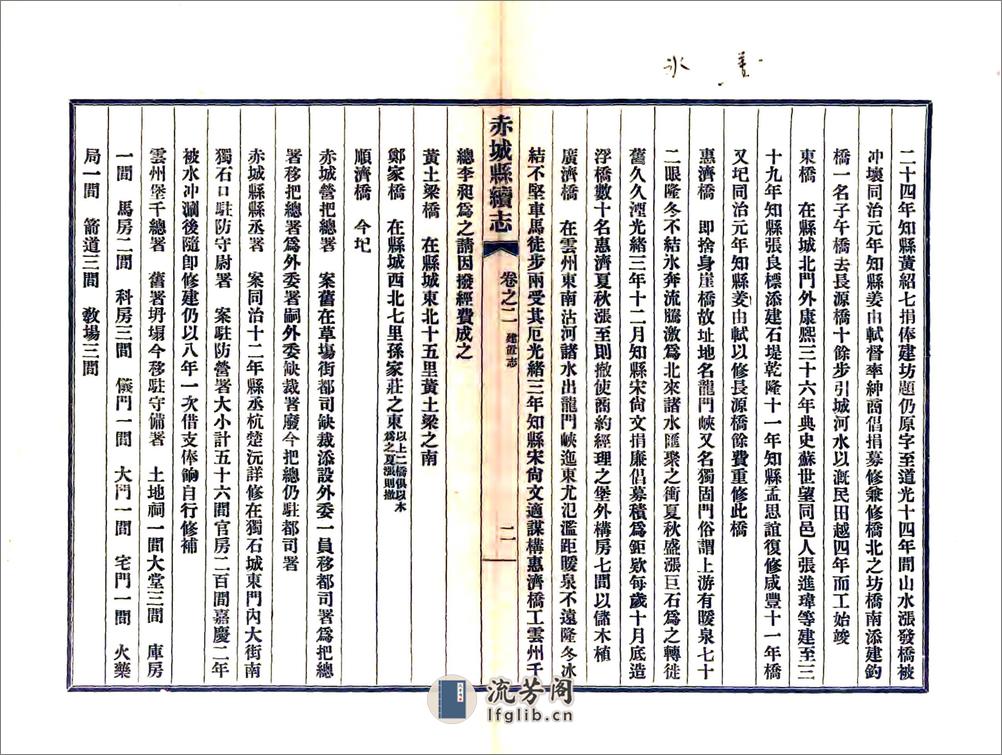 二十四年知縣黃紹七捐俸建坊題仍原字至道光十四年間山水漲發橋被
冲壞同治元年知縣姜由軾督率紳商倡捐募修兼修橋北之坊橋南添建鈞
橋一名子午橋去長源橋十餘步引城河水以漑民田越四年而工始竣
東橋　在縣城北門外康熙三十六年典史蘇世望同邑人張進瑋等建至三
十九年知縣張良標添建石堤乾隆十一年知縣孟思誼復修咸豐十一年橋
又圮同治元年知縣姜由軾以修長源橋餘費重修此橋
惠濟橋　即捨身崖橋故址地名龍門峽又名獨固門俗謂上游有暖泉七十
二眼隆冬不結氷奔流騰激爲北來諸水匯聚之衝夏秋盛漲巨石爲之轉徙
舊久久湮光緒三年十二月知縣宋尙文捐廉倡募積爲鉅欵每歲十月底造
浮橋數十名惠濟夏秋漲至則撤使商約經理之堡外構房七間以儲木植
廣濟橋　在雲州東南沽河諸水出龍門峽迤東尤汜濫距暖泉不遠隆冬冰
結不堅車馬徒步兩受其厄光緒三年知縣宋尙文適謀構惠濟橋工雲州千
總李昶爲之請因撥經費成之
黃土梁橋　在縣城東北十五里黃土梁之南
鄭家橋　在縣城西北七里孫家莊之東以上二橋俱以木爲之夏漲則撤
順濟橋　今圮
赤城營把總署　案舊在草場街都司缺裁添設外委一員移都司署爲把總
署移把總署爲外委署嗣外委缺裁署廢今把總仍駐都司署
赤城縣縣丞署　案同治十二年縣丞杭楚沅詳修在獨石城東門內大街南
獨石口駐防守尉署　案駐防營署大小計五十六間官房二百間嘉慶二年
被水冲涮後隨卽修建仍以八年一次借支俸餉自行修補
雲州堡千總署　舊署坍塌今移駐守備署　土地祠一間大堂三間　庫房
一間　馬房二間　科房三間　儀門一間　大門一間　宅門一間　火藥
局一間　箭道三間　敎場三間
赤城縣續志
卷之二 建置志
二
流芳阁
lfglib.cn